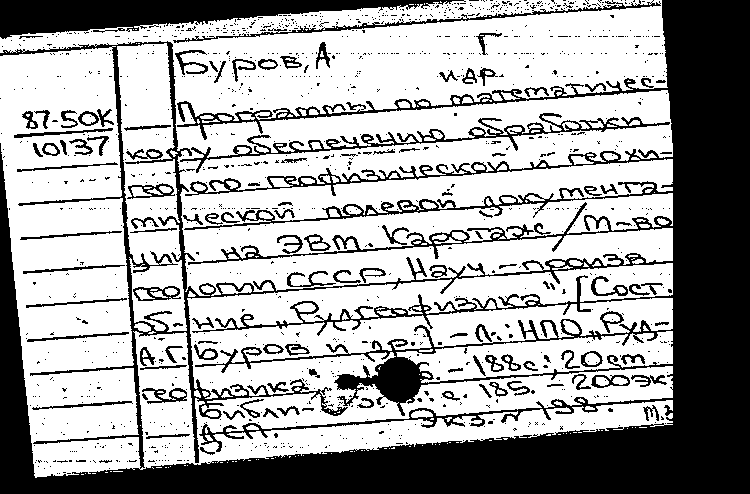 Буров, А. Г.
и др.
87-50К
10137
Программы по математичес-
кому обеспечению обработки
геолого-геофизической и геохи-
мической полевой документа-
ции на ЭВМ. Каротаж / М-во
геологии СССР, Науч.-произв.
об-ние „Рудгеофизика“; [Сост.
А.Г. Буров и др.]. - Л.: НПО „Руд-
геофизика“, - 188с.; 20см.
Библи- с. 185. - 200 экз
Деп. Экз. № 198.